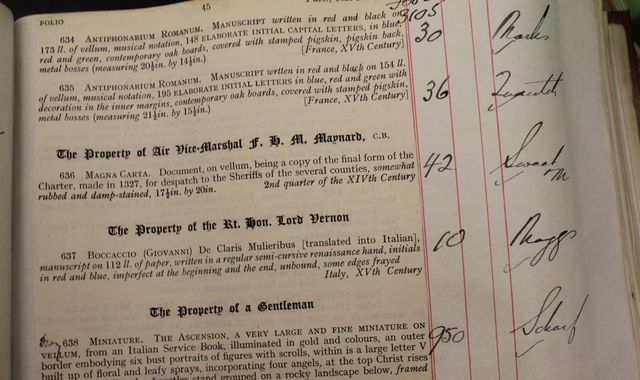 45
FOLIO
3105
634 ANTIPHONARIUM ROMANUM. MANUSCRIPT written in red and black on
173 ll. of vellum, musical notation, 148 ELABORATE INITIAL CAPITAL LETTERS, in blue,
red and green, contemporary oak boards, covered with stamped pigskin, pigskin back,
metal bosses (measuring 20½in. by 14½in.) [France, XVth Century]
30
635 ANTIPHONARIUM ROMANUM. MANUSCRIPT written in red and black on 154 ll.
of vellum, musical notation, 195 ELABORATE INITIAL LETTERS in blue, red and green with
decoration in the inner margins, contemporary oak boards, covered with stamped pigskin,
metal bosses (measuring 21½in. by 15½in.) [France, XVth Century]
36
The Property of Air Vice-Marshal F. H. M. Maynard, C.B.
636 MAGNA CARTA. Document, on vellum, being a copy of the final form of the
Charter, made in 1327, for despatch to the Sheriffs of the several counties, somewhat
rubbed and damp-stained, 17½in. by 20in. 2nd quarter of the XIVth Century
42 Sweet
m
The Property of the Rt. Hon. Lord Vernon
637 BOCCACCIO (GIOVANNI) De Claris Mulieribus [translated into Italian],
manuscript on 112 ll. of paper, written in a regular semi-cursive renaissance hand, initials
in red and blue, imperfect at the beginning and the end, unbound, some edges frayed
Italy, XVth Century
10 Maggs
The Property of a Gentleman
638 MINIATURE. THE ASCENSION, A VERY LARGE AND FINE MINIATURE ON
VELLUM, from an Italian Service Book, illuminated in gold and colours, an outer
border embodying six bust portraits of figures with scrolls, within is a large V
built up of floral and leafy sprays, incorporating four angels, at the top Christ rises
stand grouped on a rocky landscape below, framed
950 Scharf